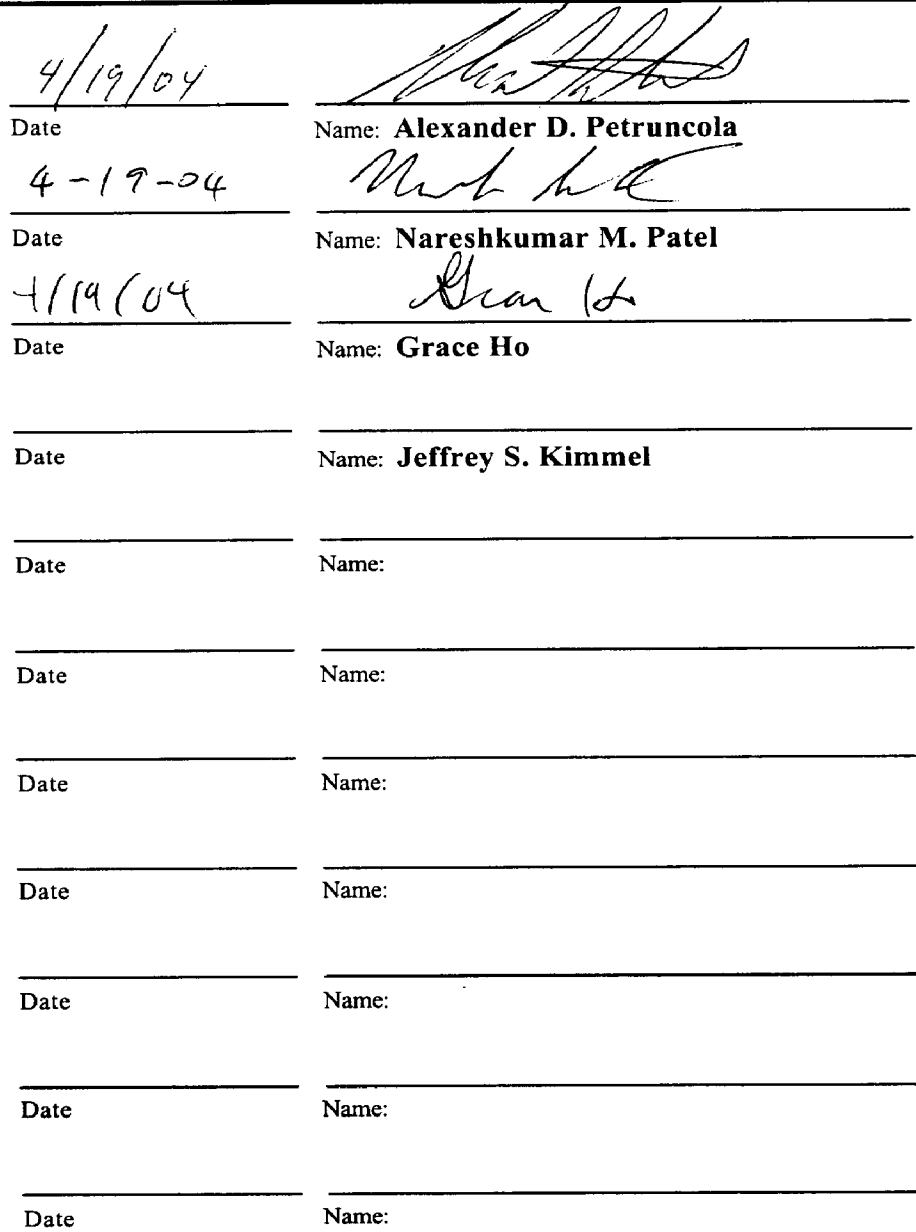 4/19/04
Date Name: Alexander D. Petruncola
4-19-04
Date Name: Nareshkumar M. Patel
4/19/04 Grace Ho
Date Name: Grace Ho
Date Name: Jeffrey S. Kimmel
Date Name:
Date Name:
Date Name:
Date Name:
Date Name:
Date Name:
Date Name: